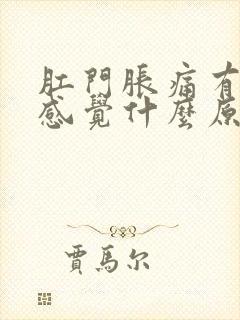 肛門脹痛有
感覺什麼原
賈馬尔